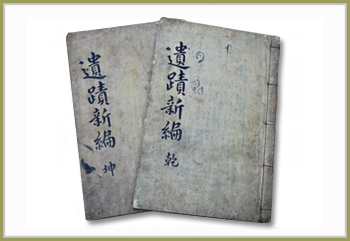 遺蹟新編
坤
遺蹟新編
乾